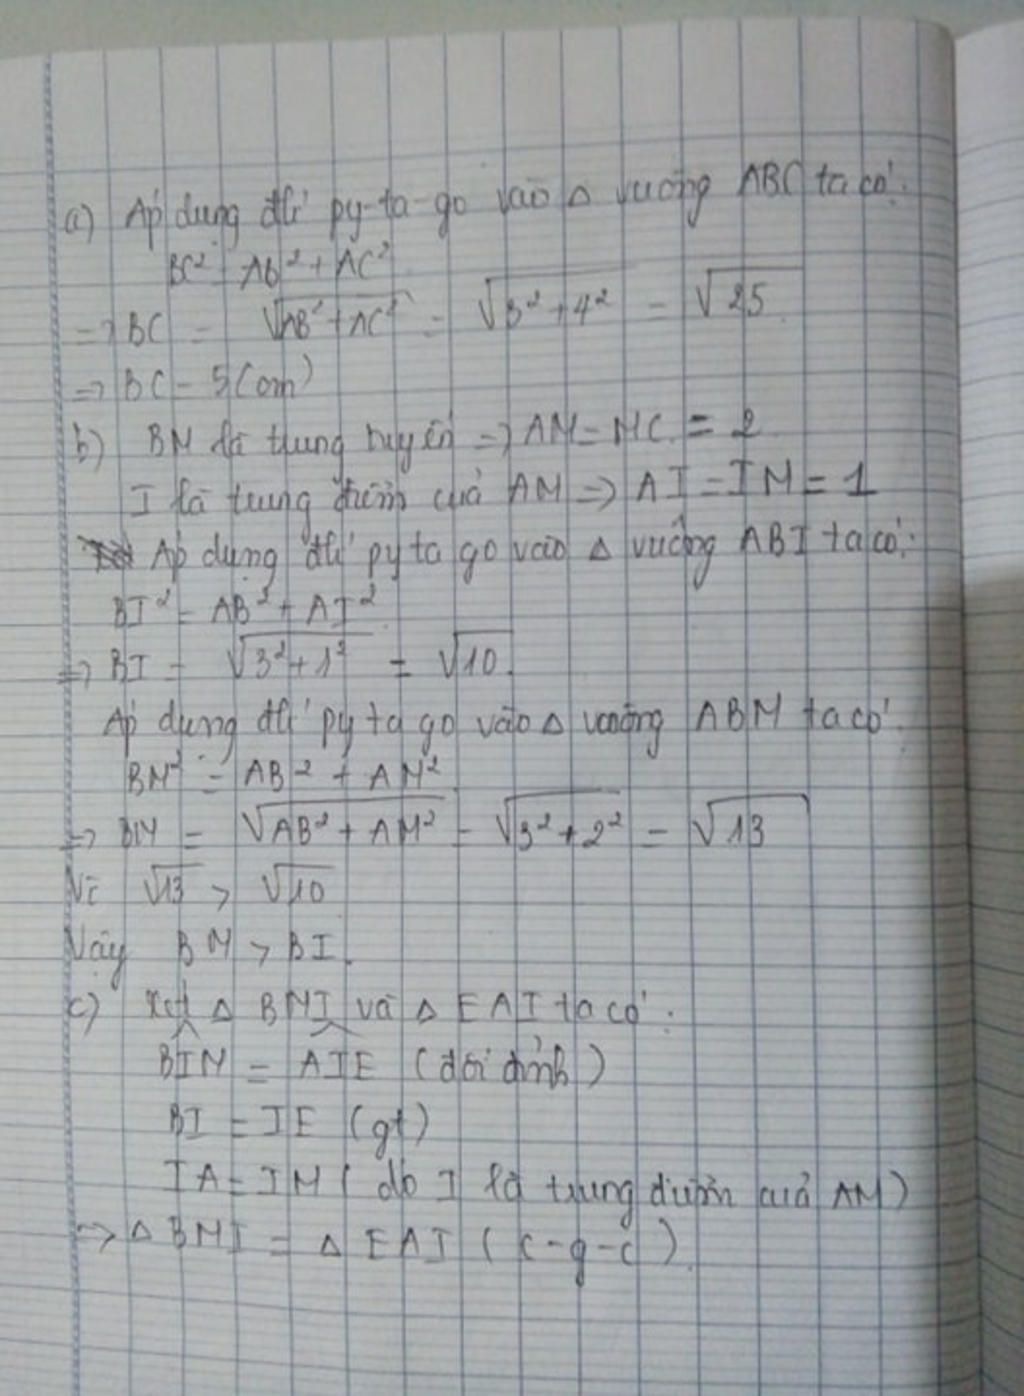 a) Áp dụng đlí py-ta-go vào Δ vuông ABC ta có:
BC² = AB² + AC²
=> BC = √AB² + AC² = √3² + 4² = √25
=> BC = 5 (cm)
b) BM là trung tuyến => AM = MC = 2
I là trung điểm của AM => AI = IM = 1
Áp dụng đlí py ta go vào Δ vuông ABI ta có:
BI² = AB² + AI²
=> BI = √3² + 1² = √10
Áp dụng đlí py ta go vào Δ vuông ABM ta có
BM² = AB² + AM²
=> BM = √AB² + AM² = √3² + 2² = √13
Vì √13 > √10
Vậy BM > BI.
c) Xét Δ BMI và Δ EAI ta có:
BIM = AIE (đối đỉnh)
BI = IE (gt)
IA = IM (do I là trung điểm của AM)
=> Δ BMI = Δ EAI (c-g-c)